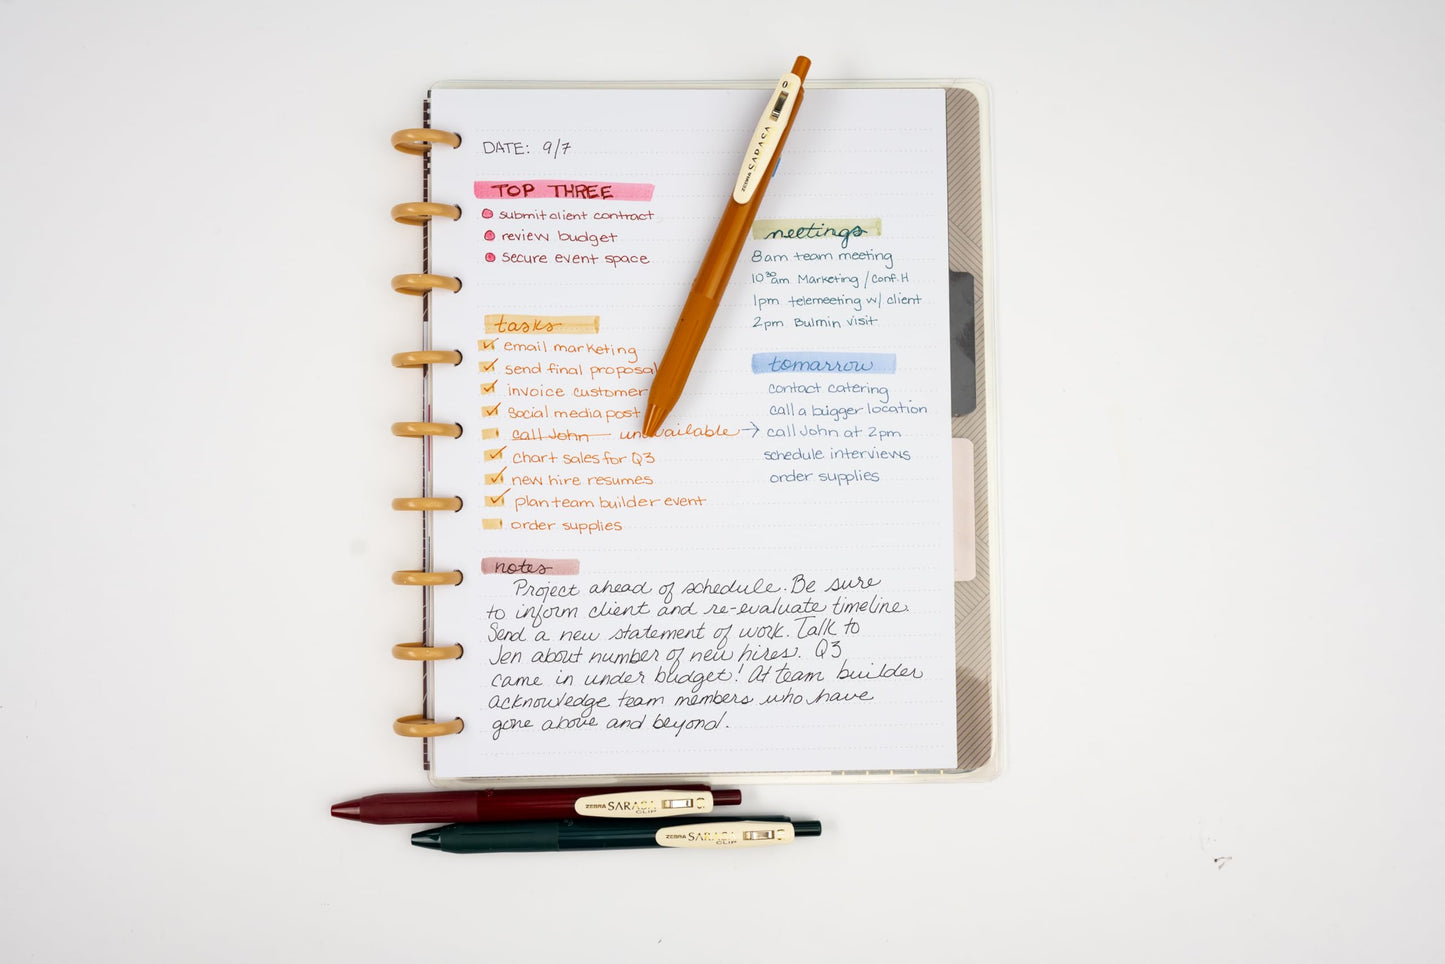 DATE: 9/7
TOP THREE
submit client contract
review budget
secure event space
tasks
email marketing
send final proposal
invoice customer
social media post
call John unavailable →
chart sales for Q3
new hire resumes
plan team builder event
order supplies
meetings
8am team meeting
10:30am Marketing / Conf. H
1pm telemeeting w/ client
2pm Bulmin visit
tomarrow
contact catering
call a bigger location
call John at 2pm
schedule interviews
order supplies
notes
Project ahead of schedule. Be sure
to inform client and re-evaluate timeline.
Send a new statement of work. Talk to
Jen about number of new hires. Q3
came in under budget! At team builder
acknowledge team members who have
gone above and beyond.
ZEBRA SARASA
ZEBRA SARASA CLIP
ZEBRA SARASA CLIP